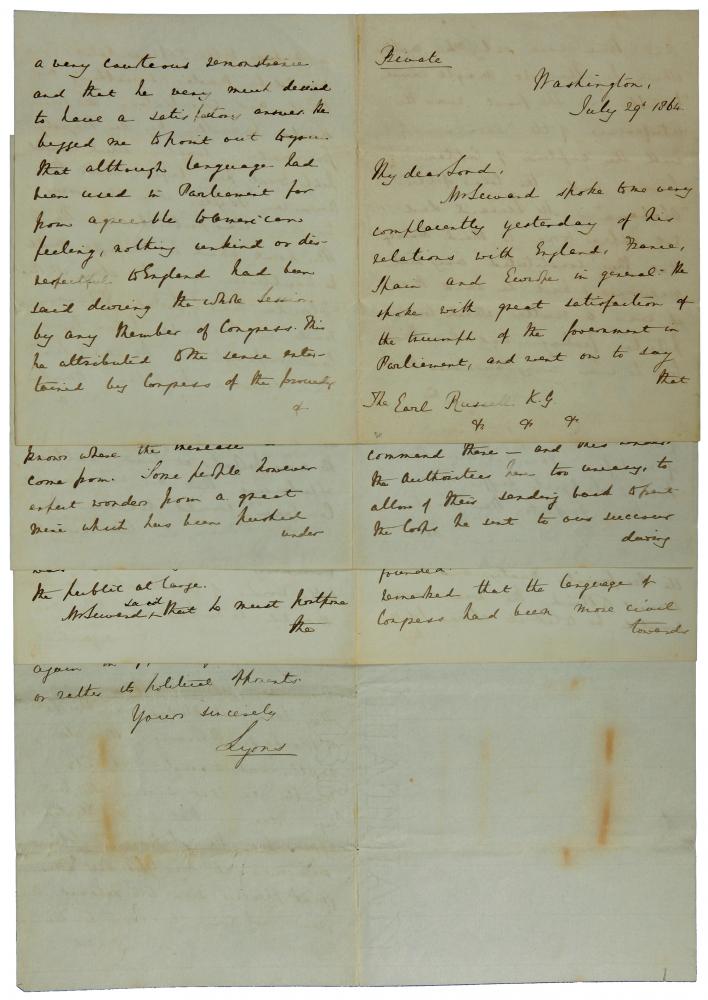 Private
Washington,
July 29th 1864.
My dear Lord,
Mr Seward spoke to me very
complacently yesterday of his
relations with England, France,
Spain and Europe in general. He
spoke with great satisfaction of
the triumph of the Government in
Parliament, and went on to say
that
The Earl Russell K.G.
& & &
a very courteous remonstrance
and that he very much desired
to have a satisfactory answer. He
begged me to point out to you
that although language had
been used in Parliament far
from agreeable to American
feeling, nothing unkind or dis-
respectful to England had been
said during the whole Session
by any Member of Congress. This
he attributed to the sense enter-
tained by Congress of the friendly
&
command there – and this
the Authorities here too uneasy, to
allow of their sending back to
the Corps he sent to our succour
during
knows where the increase
come from. Some people however
expect wonders from a great
mine which has been pushed
under
founded.
remarked that the language of
Congress had been more civil
towards
the public at large.
Mr Seward said that he must postpone
the
again on
or rather its political opponents.
Yours sincerely
Lyons